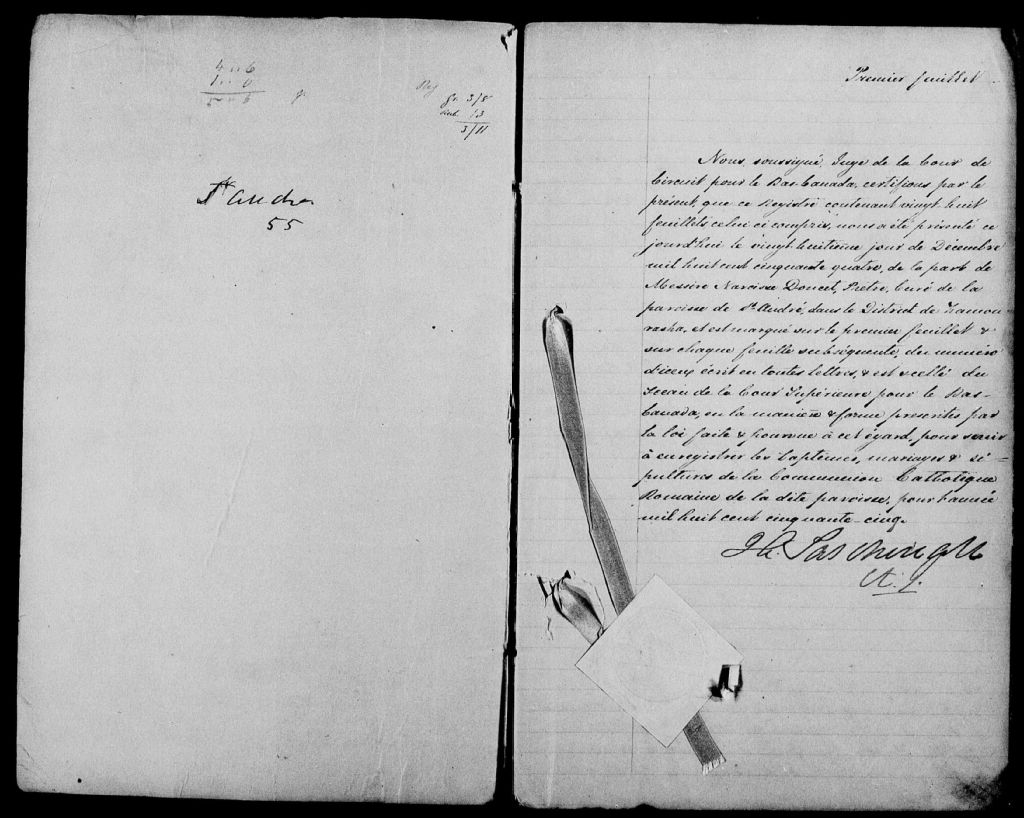 4 " 6
1 " 0
5 " 6
Reg
gr. 3/8
/3
3/11
St André
55
Premier feuillet
Nous, soussigné, Juge de la Cour de
Circuit pour le Bas-Canada, certifions par le
présent, que ce Registre contenant vingt huit
feuillets celui ci compris, nous a été présenté ce
jourd'hui le vingt huitième jour de Décembre
mil huit cent cinquante quatre, de la part de
Messire Narcisse Doucet, Prêtre, Curé de la
paroisse de St André, dans le District de Kamou-
raska, et est marqué sur le premier feuillet &
sur chaque feuille subséquente, du numéro
d'iceux écrit en toutes lettres, & est scellé du
Sceau de la Cour Supérieure pour le Bas-
Canada, en la manière & forme prescrites par
la loi faite & pourvue à cet égard, pour servir
à enregistrer les baptêmes, mariages & sé-
pultures de la Communion Catholique
Romaine de la dite paroisse, pour l'année
mil huit cent cinquante-cinq.